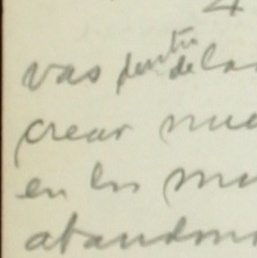 vas dentro de la
crear nue
en los mu
abandon